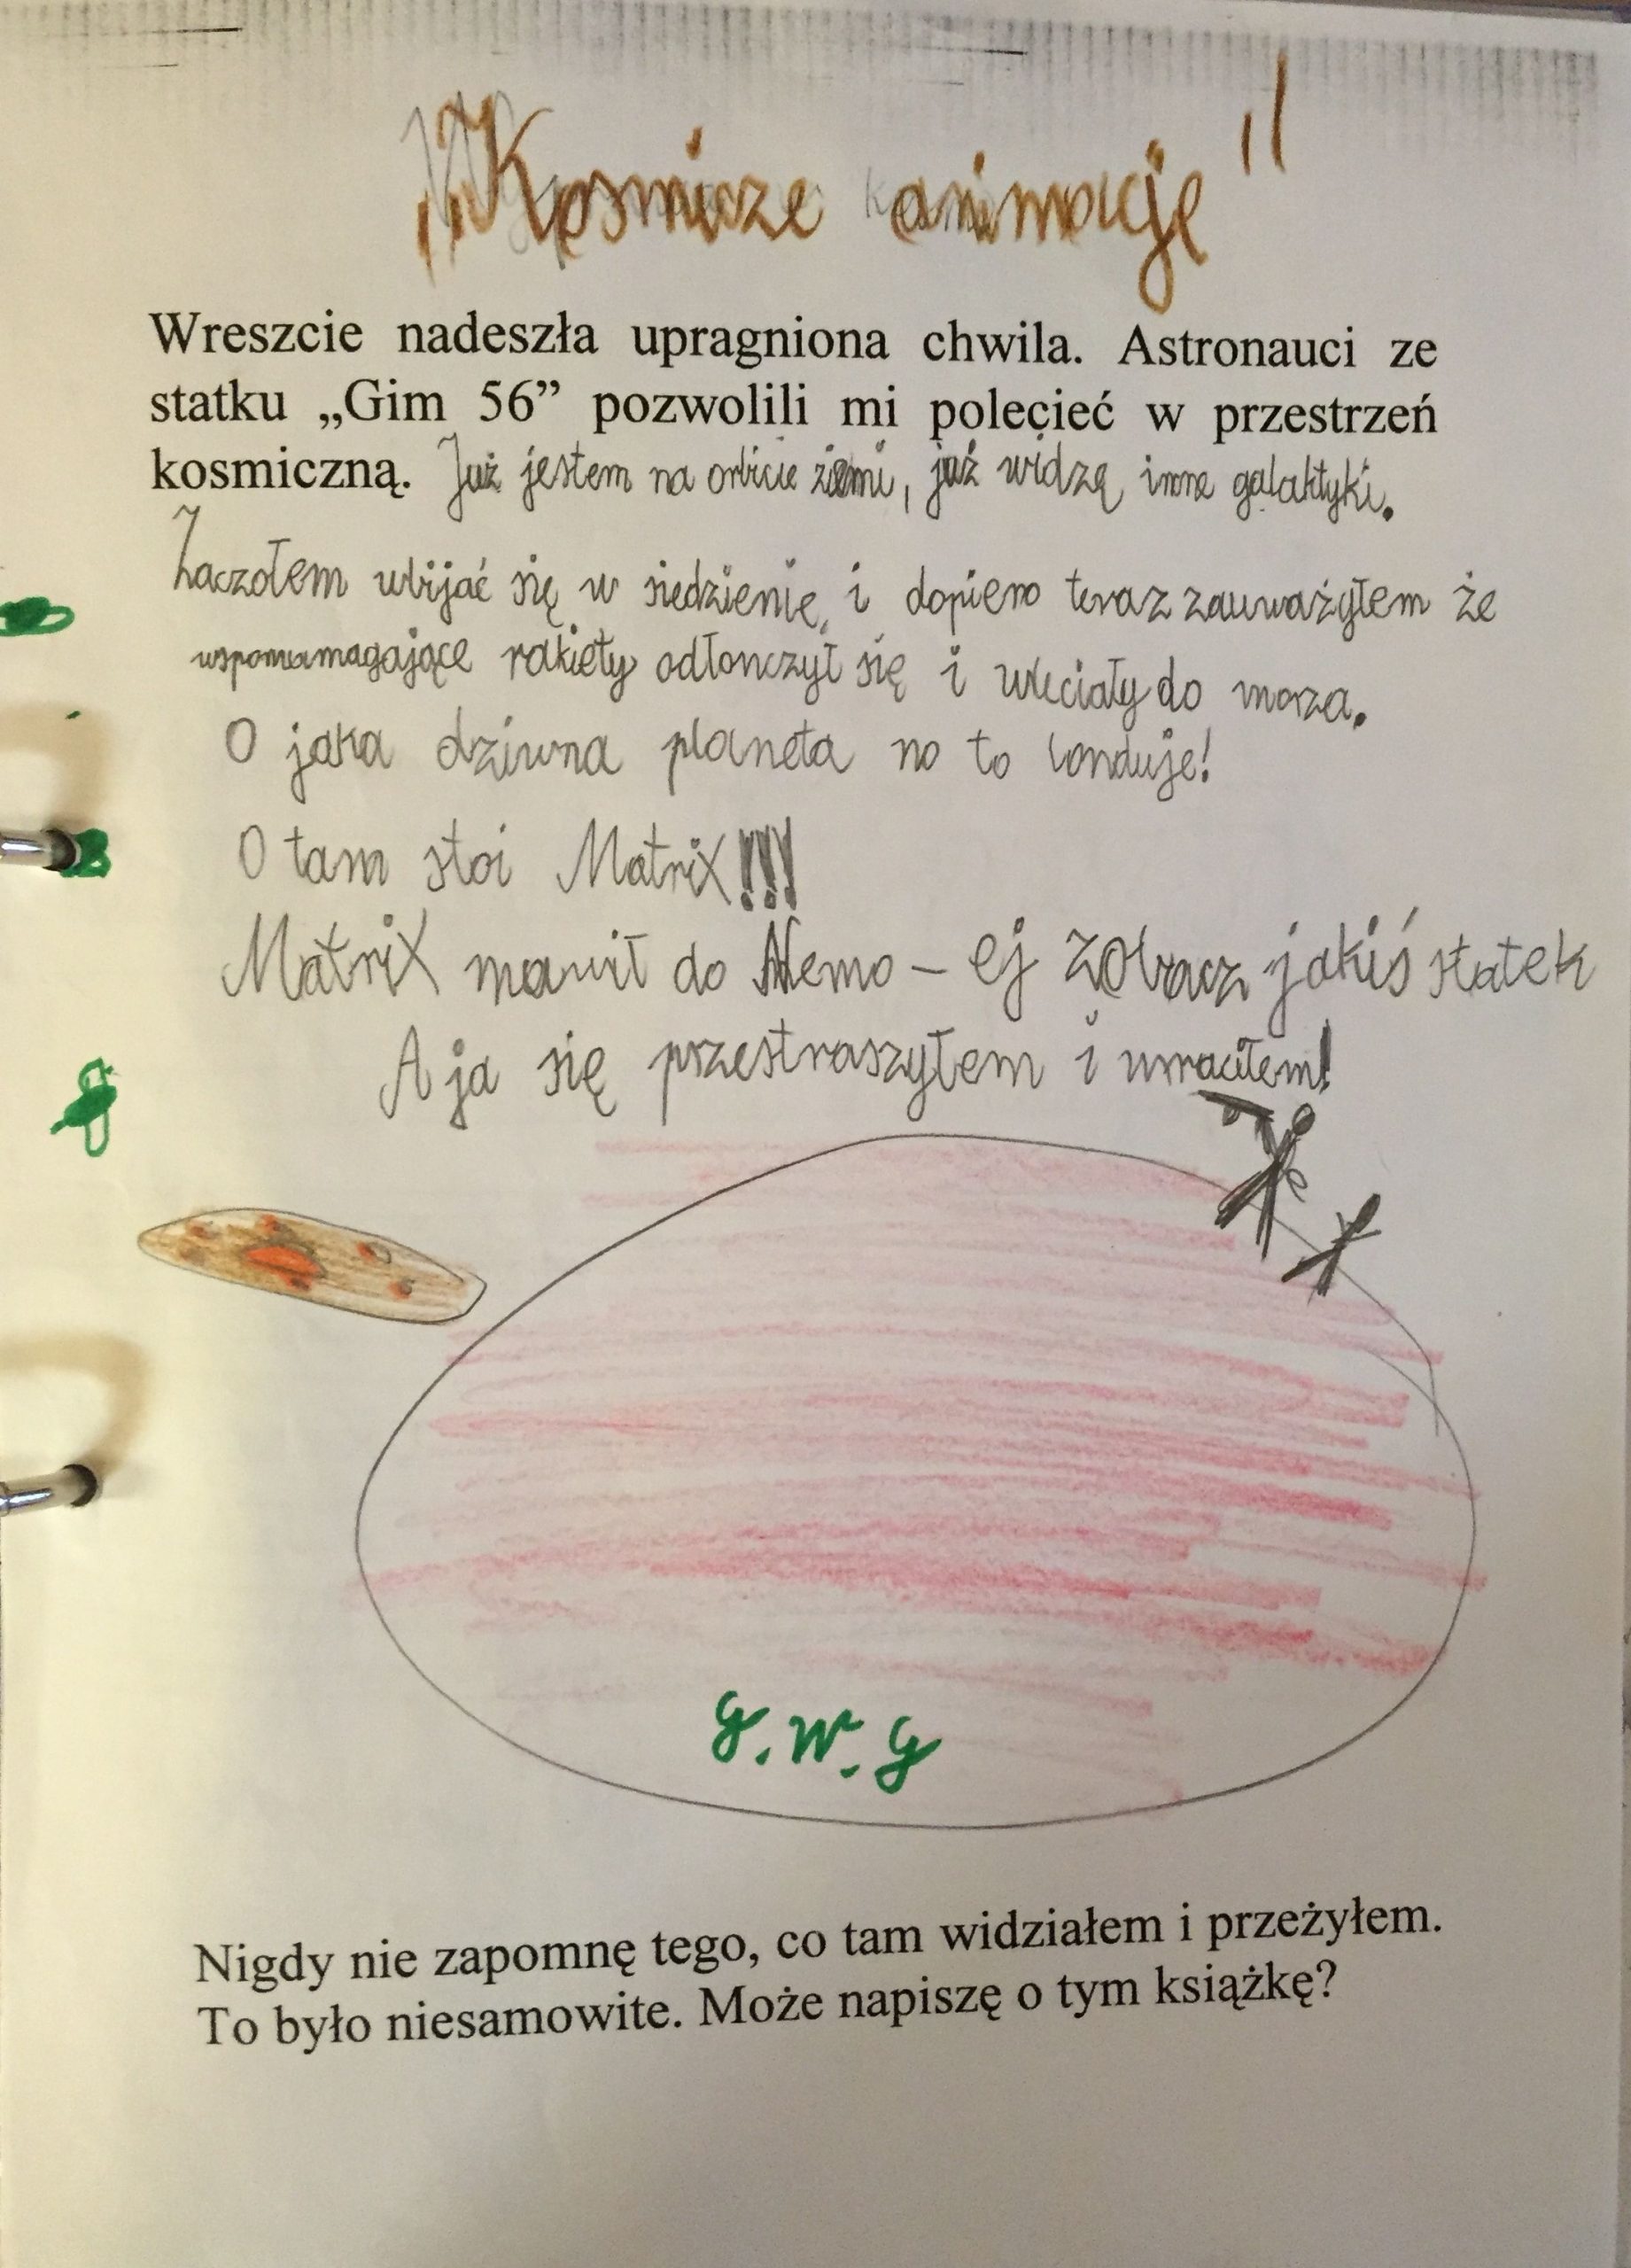 „Kosmicze animacje"
Wreszcie nadeszła upragniona chwila. Astronauci ze
statku „Gim 56” pozwolili mi polecieć w przestrzeń
kosmiczną. Już jestem na orbicie ziemi, już widzę inne galaktyki.
Zaczołem wbijać się w siedzienie, i dopiero teraz zauważyłem że
rakiety odłonczył się i wleciały do morza.
O jaka dziwna planeta no to londuje!
O tam stoi Matrix!!!
Matrix mówił do Nemo – ej zobacz jakiś statek
A ja się przestraszyłem i wróciłem!
G.W.G
Nigdy nie zapomnę tego, co tam widziałem i przeżyłem.
To było niesamowite. Może napiszę o tym książkę?